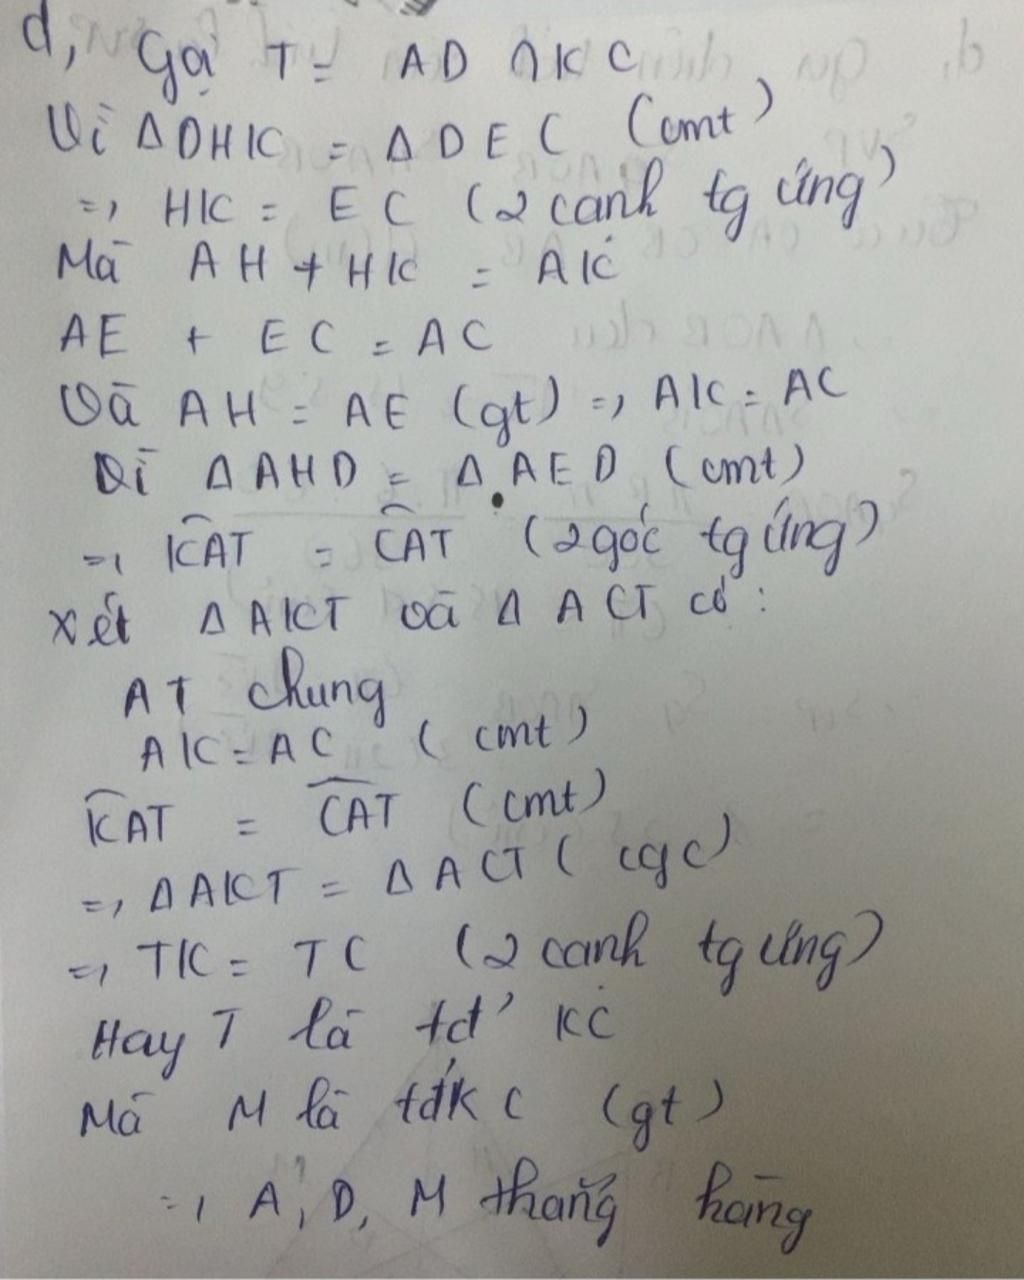 d, Gọi T = AD ∩ KC
Vì Δ DHK = Δ DEC (cmt)
=> HK = EC (2 cạnh tg ứng)
Mà AH + HK = AK
AE + EC = AC
Và AH = AE (gt) => AK = AC
Vì Δ AHD = Δ AED (cmt)
=> K̂AT = ĈAT (2 góc tg ứng)
Xét Δ AKT và Δ ACT có :
AT chung
AK = AC (cmt)
K̂AT = ĈAT (cmt)
=> Δ AKT = Δ ACT (cgc)
=> TK = TC (2 cạnh tg ứng)
Hay T là tđ' KC
Mà M là tđ KC (gt)
=> A, D, M thẳng hàng